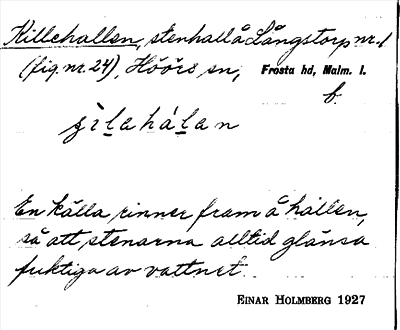 Killehallen, stenhall å Långstorp nr. 1
(fig. nr. 24), Höörs sn, Frosta hd, Malm. l.
f.
En källa rinner fram å hällen,
så att stenarna alltid glänsa
fuktiga av vattnet.
EINAR HOLMBERG 1927